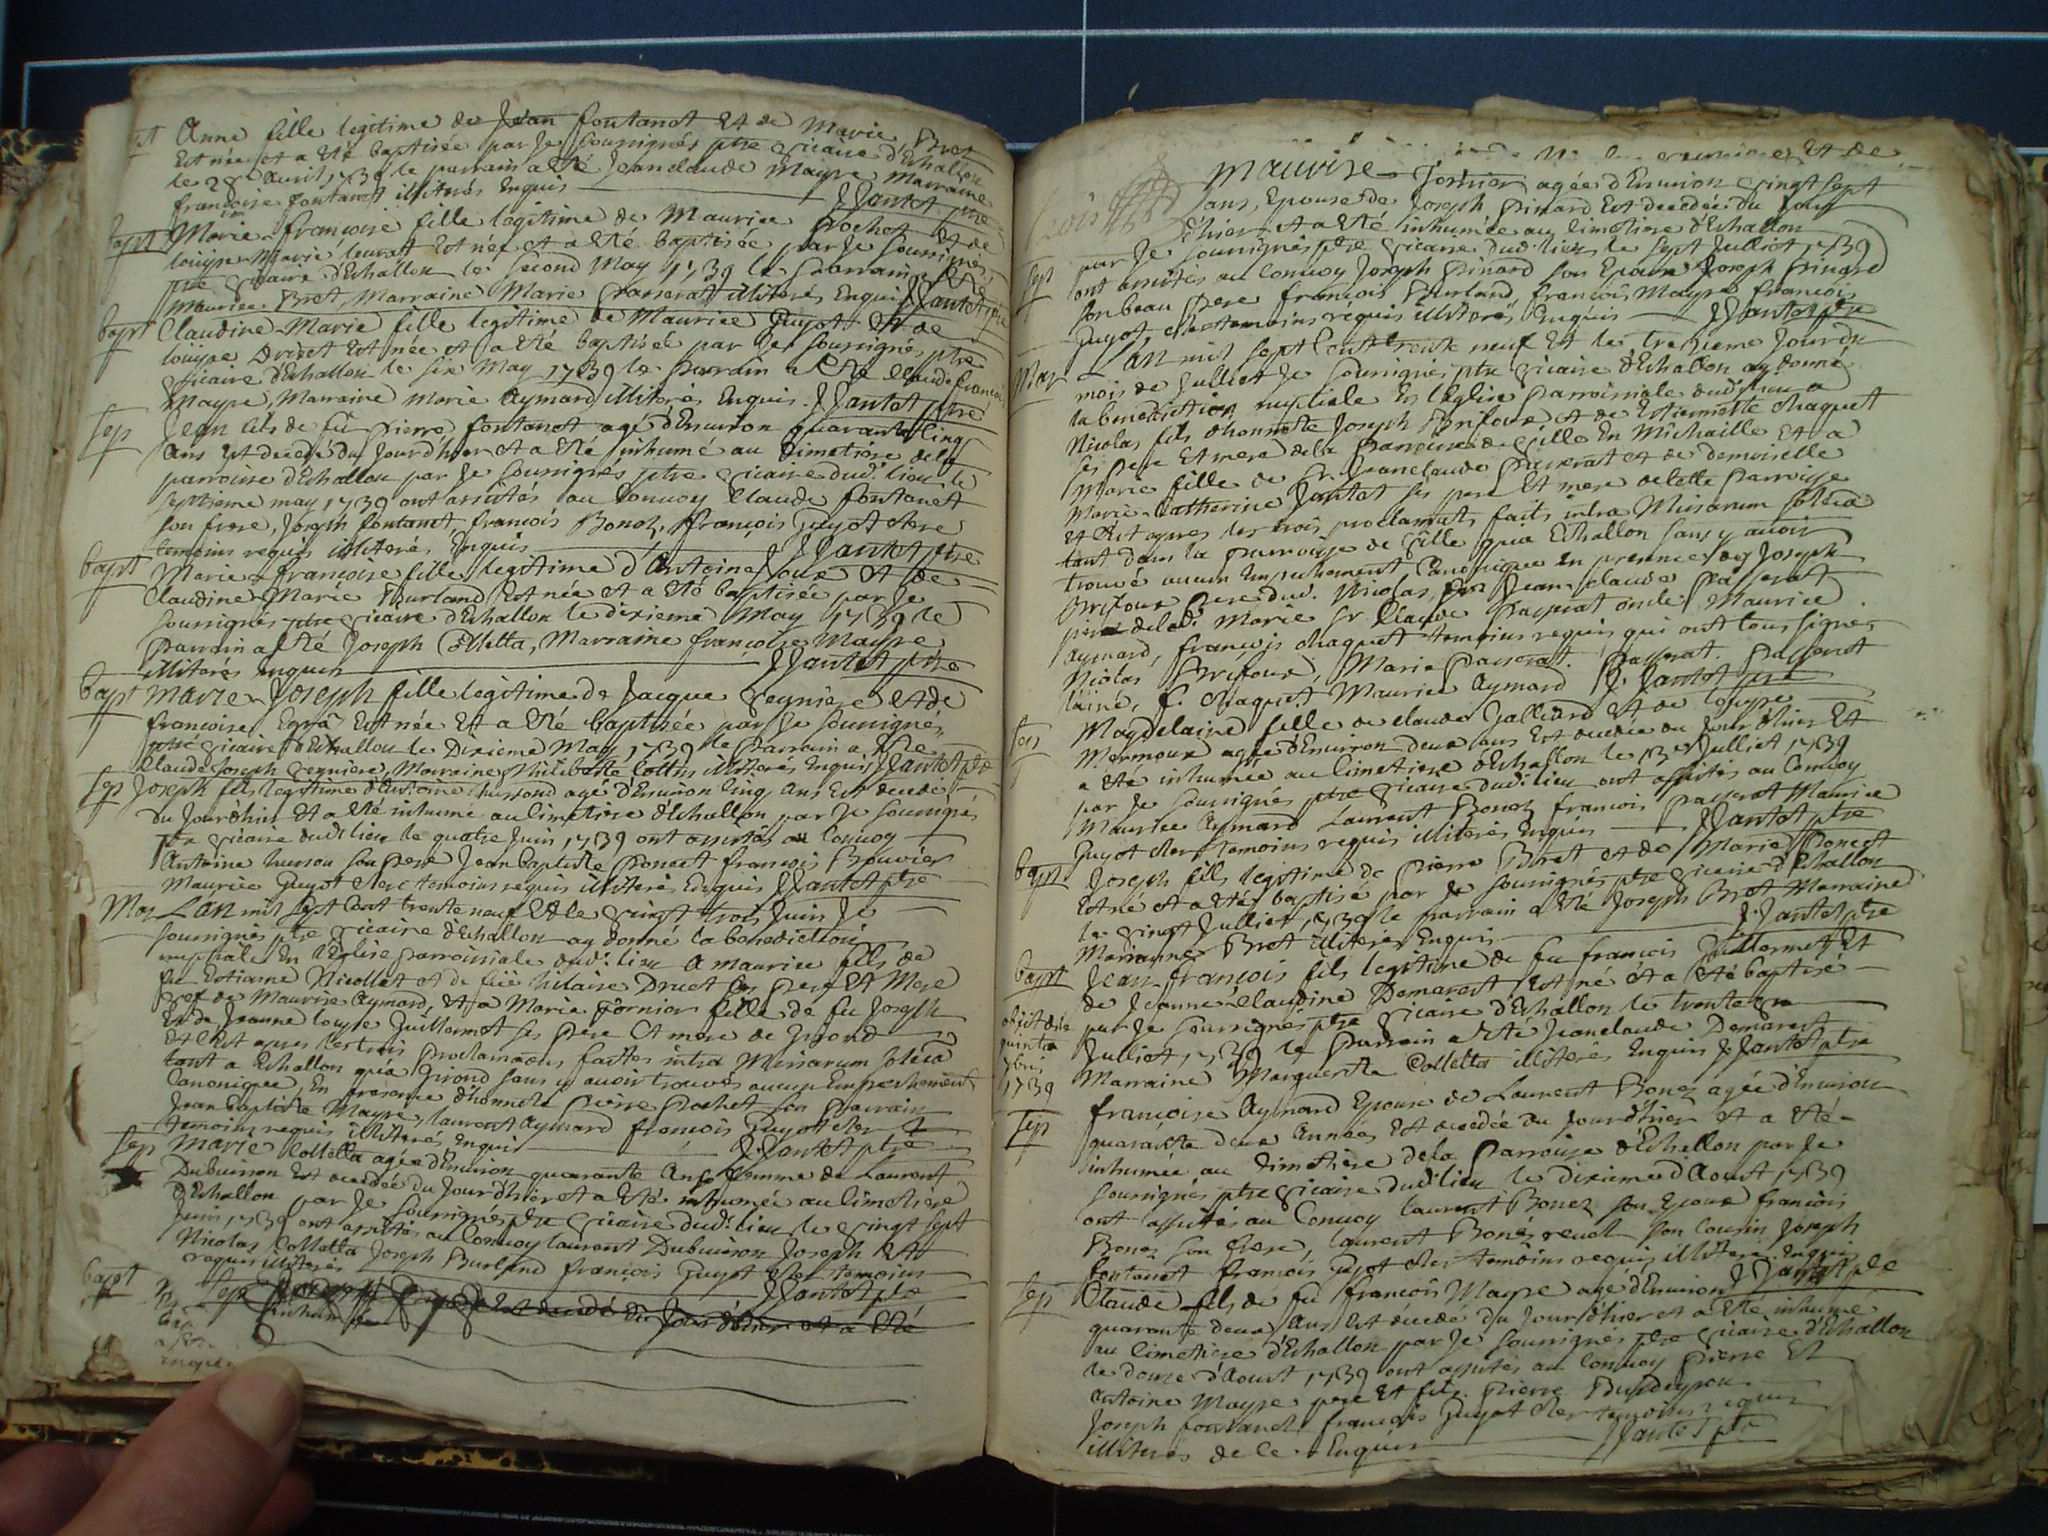 Anne fille legitime de Jean fontanet Et de Marie Bret
Est née et a Eté baptisée par Je soussignés ptre vicaire d'Echallon
le 28e Avril 1739 le parrain a Eté Jeanclaude Mayre Marraine
francoise fontanet illiterés Enquis J Jantet ptre
bapt Marie-francoise fille legitime de Maurice Pochet Et de
louyse Marie leurat Est née et a Eté baptisée par Je soussignés
ptre vicaire d'Echallon le second May 1739 le Parrain a Eté
Maurice Bret, Marraine Marie Passerat illiterés Enquis J Jantet ptre
bapt Claudine-Marie fille legitime de Maurice Guyot Et de
louyse Druet Est née et a Eté baptisée par Je soussignés ptre
vicaire d'Echallon le six May 1739 le Parrain a Eté Claude francois
Mayre, Marraine Marie Aymard illiterés Enquis J Jantet ptre
Sep Jean fils de fû Pierre fontanet agé d'Environ quarante Cinq
Ans Est decedé du Jourd'hier et a Eté inhumé au Cimetière de la
parroisse d'Echallon par Je soussignés ptre vicaire dud. lieu le
septieme may 1739 ont assistés au Convoy Claude fontanet
son frere, Joseph fontanet, francois Bonoz, francois Guyot clerc
temoins requis illiterés Enquis J Jantet ptre
bapt Marie-francoise fille legitime d'Antoine Joux Et de
Claudine-Marie Burland Est née et a Eté baptisée par Je
soussignés ptre vicaire d'Echallon le dixieme May 1739 le
Parrain a Eté Joseph Colletta, Marraine francoise Mayre
illiterés Enquis J Jantet ptre
bapt Marie-Joseph fille legitime de Jacque Seyniere Et de
francoise Est née Et a Eté baptisée par Je soussignés
ptre vicaire d'Echallon le Dixieme May 1739 le Parrain a Eté
Claude Joseph Seyniere, Marraine Philiberte Collet illiterés Enquis J Jantet ptre
Sep Joseph fils legitime d'Antoine husson agé d'Environ Cinq Ans Est decedé
du Jourd'hier Et a Eté inhumé au Cimetiere d'Echallon par Je soussignés
ptre vicaire dud. lieu le quatre Juin 1739 ont assistés au Convoy
Antoine husson son Pere Jean baptiste Poncet francois Bouvier
Maurice Guyot clerc temoins requis illiterés Enquis J Jantet ptre
Mar L'An mil sept Cent trente neuf Et le vingt trois Juin Je
soussignés ptre vicaire d'Echallon ay donné la benediction
nuptiale En l'Eglise parroissiale dud. lieu A Maurice fils de
fu Estienne Nicollet et de fuë hilaire Druet ses Pere Et Mere
vef de Maurise Aymard, Et a Marie Fornier fille de fu Joseph
Et de Jeanne louyse Guillermet ses Pere Et mere de Girond
Et C'est apres les trois Proclamaons faites intra Missarum solëa
tant a Echallon qu'a Girond sans y avoir trouvé aucun Empechement
Canonique, En presence d'honnete Pierre Pochet son Parrain
Jean baptiste Mayre, laurent Aymard francois Guyot clerc
temoins requis illiterés Enquis J. Jantet ptre
Sep Marie Colletta agée d'Environ quarante Ans femme de Laurent
Dubuisson Est decedée du Jourd'hier et a Eté inhumée au Cimetiere
d'Echallon par Je soussignés ptre vicaire dud. lieu le vingt sept
Juin 1739 ont assistés au Convoy laurent Dubuisson Joseph Et
Nicolas Colletta Joseph Burland francois Guyot clerc temoins
requis illiterés J Jantet ptre
bapt
Sep Est decedé du Jourd'hier et a Eté
inhumé
Maurise Fornier agée d'Environ vingt sept
ans, Epouse de Joseph Pinard Est decedée du Jour
d'hier et a Eté inhumée au Cimetiere d'Echallon
Sep par Je soussignés ptre vicaire dud. lieu le sept Julliet 1739
ont assistés au Convoy Joseph Pinard son Epoux Joseph Pinard
son beau Pere francois Burland francois Mayre francois
Guyot clerc temoins requis illiterés Enquis J Jantet ptre
Mar L'An mil sept Cent trente neuf Et le trezieme Jour du
mois de Julliet Je soussignés ptre vicaire d'Echallon ay donné
la benediction nuptiale En l'Eglise Parroissiale dud. lieu a
Nicolas fils d'honneste Joseph Brifoux et de Estiennette Chaquet
ses Pere Et mere de la Parroisse de Ville En Michaille Et a
Marie fille de Sr. Jeanclaude Passerat et de demoiselle
Marie-Catherine Jantet ses pere Et mere de Cette Parroisse
Et C'est apres les trois proclamats faits intra Missarum solëa
tant dans la Parroisse de Ville qua Echallon sans y avoir
trouvé aucun Empechement Canonique en presence de Joseph
Brifoux Pere dud. Nicolas, Jean-claude Passerat
pere de lad. Marie Sr Claude Passerat oncle, Maurice
Aymard, francois Chaquet temoins requis qui ont tous signés
Nicolas Brifoux, Marie Passerat. Passerat. Passerat
laîné, f. Chaquet, Maurice Aymard J. Jantet ptre
Sep Magdelaine fille de Claude Jalliard Et de louyse
Mermoux agée d'Environ deux ans Est decedée du Jour d'hier Et
a Eté inhumée au Cimetiere d'Echallon le 13e Julliet 1739
par Je soussignés ptre vicaire dud. lieu ont assistés au Convoy
Maurice Aymard Laurent Bonoz francois Passerat Maurice
Guyot clerc temoins requis illiterés Enquis J Jantet ptre
bapt Joseph fils legitime de Pierre Bret et de Marie Poncet
Est né et a Eté baptisé par Je soussignés ptre vicaire d'Echallon
le vingt Julliet 1739 le parrain a Eté Joseph Bret Marraine
Marianne Bret illiterés Enquis J. Jantet ptre
bapt Jean-francois fils legitime de fu francois Guillermet Et
de Jeanne-Claudine Demarest Est né et a Eté baptisé
par Je soussignés ptre vicaire d'Echallon le trente un
Julliet 1739 le Parrain a Eté Jeanclaude Demarest
Marraine Marguerite Colletta illiterés Enquis J Jantet ptre
obiit die
quinta
7bris
1739
Sep francoise Aymard Epouse de Laurent Bonoz agée d'Environ
quarante deux Années Est decedée du Jourd'hier et a Eté
inhumée au Cimetière de la Parroisse d'Echallon par Je
soussignés ptre vicaire dud. lieu le dixieme d'Aoust 1739
ont assistés au Convoy laurent Bonoz son Epoux francois
Bonoz son frere, laurent Bonoz son Cousin Joseph
fontanet francois Guyot clerc temoins requis illiteré Enquis
J Jantet ptre
Sep Claude fils de fû francois Mayre agé d'Environ
quarante deux Ans Est decedé du Jourd'hier et a Eté inhumé
au Cimetiere d'Echallon par Je soussignés ptre vicaire d'Echallon
le douze d'Aoust 1739 ont assistés au Convoy Pierre Et
Antoine Mayre pere Et fils Pierre
Joseph fontanet francois Guyot clerc temoins requis
illiterés de Ce Enquis J Jantet ptre